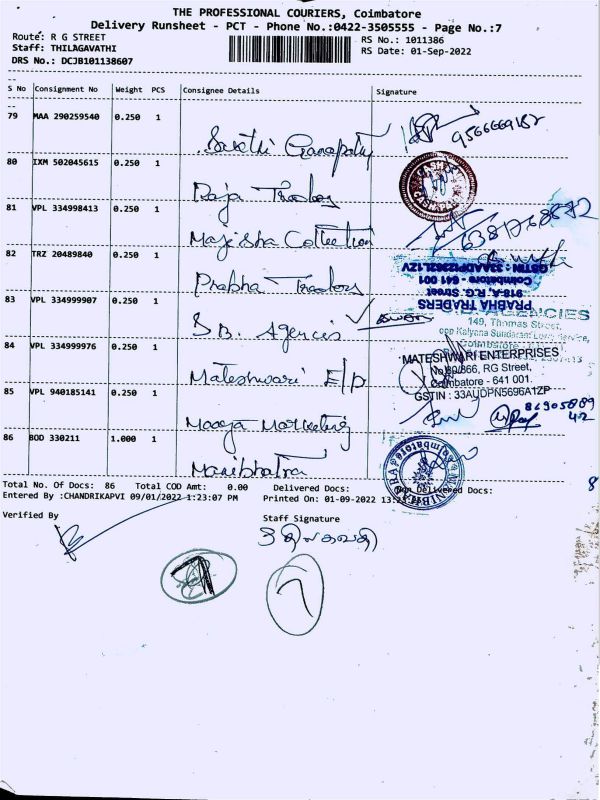 THE PROFESSIONAL COURIERS, Coimbatore
Delivery Runsheet - PCT - Phone No.:0422-3505555 - Page No.:7
Route: R G STREET
RS No.: 1011386
Staff: THILAGAVATHI
RS Date: 01-Sep-2022
DRS No.: DCJB101138607
S No Consignment No Weight PCS Consignee Details Signature
79 MAA 290259540 0.250 1
Ganapathy 9566669182
80 IXM 502045615 0.250 1
Raja Traders
81 VPL 334998413 0.250 1
Majisha Collection
82 TRZ 20489840 0.250 1
Prabha Traders
GSTIN : 33AADPI2262L1ZV
Coimbatore - 641 001
918-A, R.G. Street
PRABHA TRADERS
83 VPL 334999907 0.250 1
S.B. Agencis
AGENCIES
149, Thomas Street,
opp Kalyana Sundaram Lorry Service,
Coimbatore
84 VPL 334999976 0.250 1
Mateshwari E/p
MATESHWARI ENTERPRISES
RG Street,
Coimbatore - 641 001.
GSTIN : 33AUDPN5696A1ZP
85 VPL 940185141 0.250 1
Marketing
86 BOD 330211 1.000 1
Manibhatra
Total No. Of Docs: 86 Total COD Amt: 0.00 Delivered Docs: Non Delivered Docs:
8
Entered By :CHANDRIKAPVI 09/01/2022 1:23:07 PM Printed On: 01-09-2022
Verified By
Staff Signature
திலகவதி
7
7